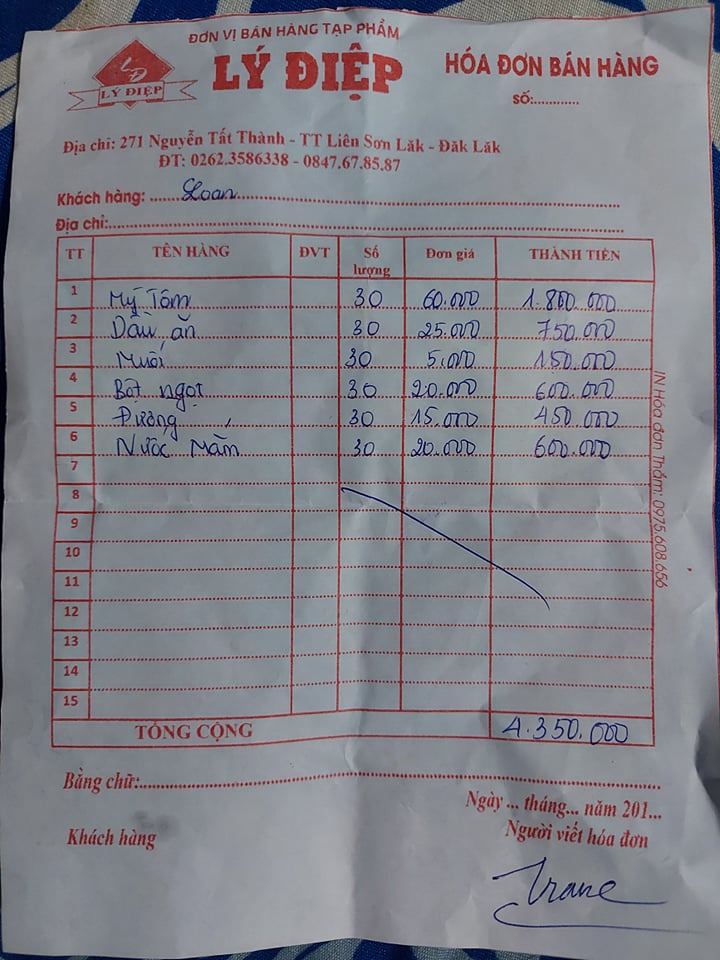 ĐƠN VỊ BÁN HÀNG TẠP PHẨM
LÝ ĐIỆP
LĐ
LÝ ĐIỆP
HÓA ĐƠN BÁN HÀNG
SỐ:............
Địa chỉ: 271 Nguyễn Tất Thành - TT Liên Sơn Lăk - Đăk Lăk
ĐT: 0262.3586338 - 0847.67.85.87
Khách hàng: Loan
Địa chỉ:
TT TÊN HÀNG ĐVT Số lượng Đơn giá THÀNH TIỀN
1 Mỳ Tôm 30 60.000 1.800.000
2 Dầu ăn 30 25.000 750.000
3 Muối 30 5.000 150.000
4 Bột ngọt 30 20.000 600.000
5 Đường 30 15.000 450.000
6 Nước Mắm 30 20.000 600.000
7
8
9
10
11
12
13
14
15
TỔNG CỘNG 4.350.000
IN Hóa đơn Thắm: 0975.608.656
Bằng chữ:
Ngày... tháng... năm 201...
Khách hàng Người viết hóa đơn